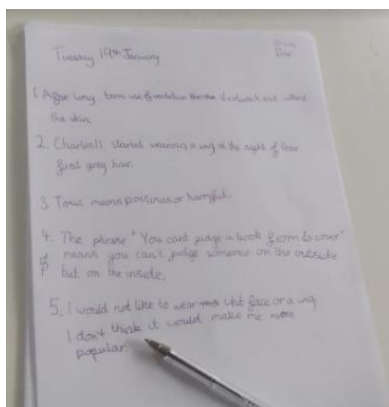 Tuesday 19th January
1. After long term use of the skin.
2. Charles II started wearing a wig at the sight of their
first gray hair.
3. Toxic means poisinus or harmful.
4. The phrase "You cant judge a book from its cover"
means you can't judge someone on the outside
but on the inside.
5. I would not like to wear whit face or a wig
I don't think it would make me more
popular.